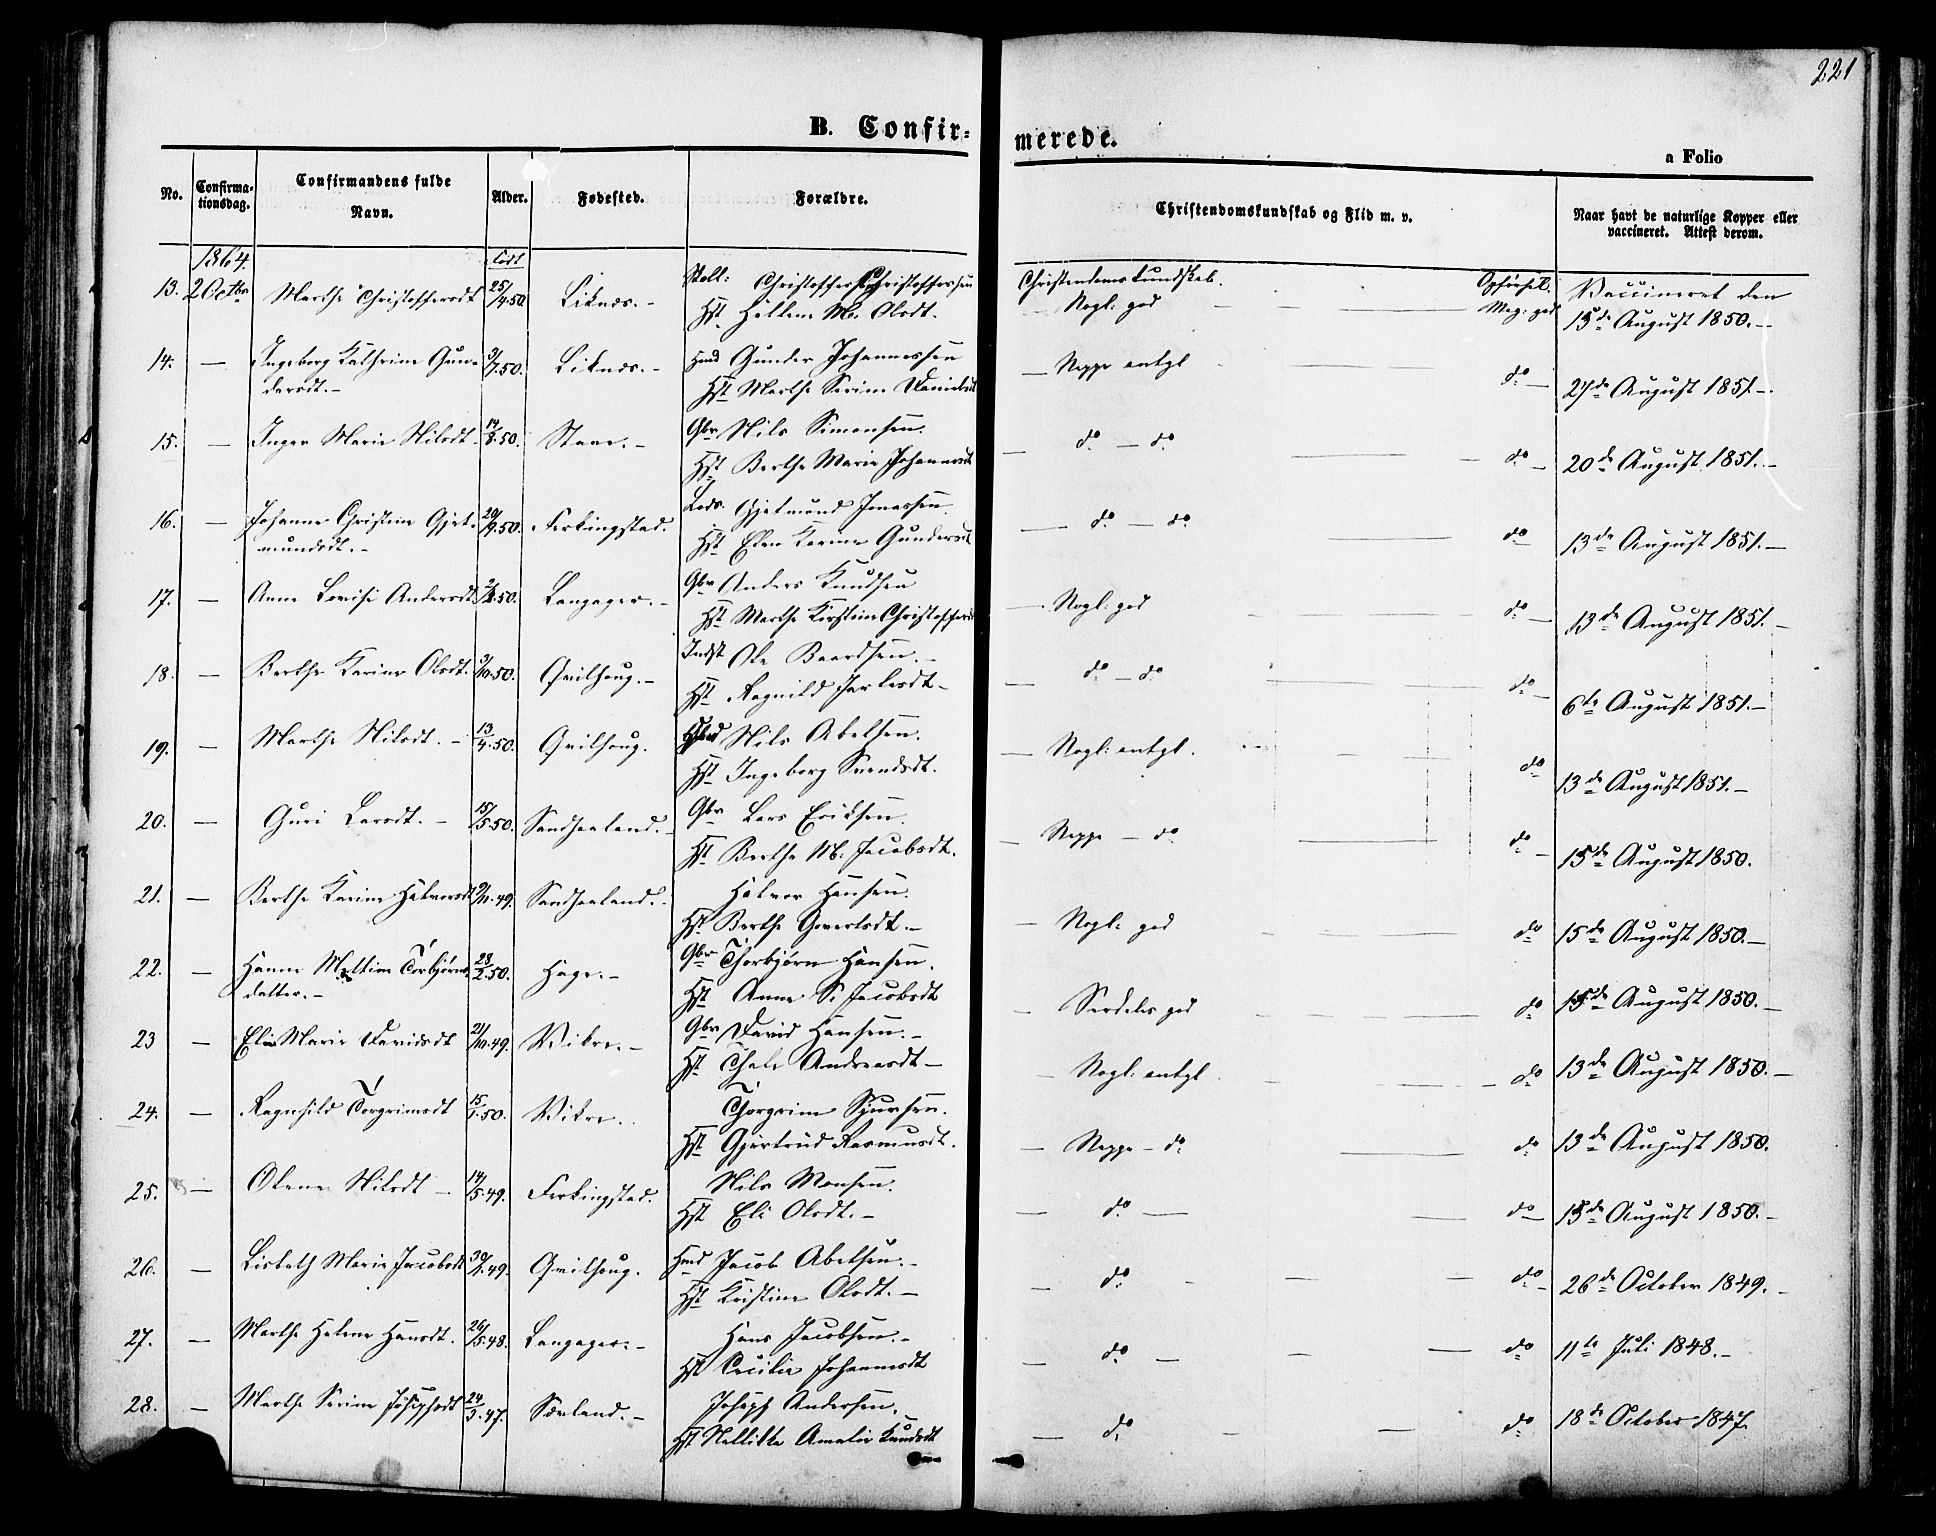 221
B. Confir-
merede.
a Folio
No.
Confirma-
tionsdag.
Confirmandens fulde
Navn.
Alder.
Fødested.
Forældre.
Christendomskundskab og Flid m. v.
Naar havt de naturlige Kopper eller
vaccineret. Attest derom.
1864.
født
13. 2 Octbr Marthe Christoffersdt 25/4.50 Liknæs.- Christoffer Christoffersen
Hst. Hellene M. Olsdt.
Christendomskundskab. Opførsel.
Nogl: god - - Meg: god
Vaccineret den
13de August 1850.-
14. — Ingeborg Kathrine Gun- 3/7.50. Liknæs.- Hmd Gunder Johannessen
dersdt.- Hst Marthe Serine Danielsdt
— Neppe antgl — — do — 27de August 1851.-
15. — Inger Marie Nilsdt 19/8.50. Stave.- Gbr Nils Simonsen.
Hst Berthe Marie Johannesdt
— do — do — do — 20de August 1851.-
16. — Johanne Christine Gjet- 20/9.50. Ferkingstad. Lods. Gjetmund Jonassen.
mundsdt.- Hst Elen Karine Gundersdt
— do — do — do 13de August 1851.—
17. — Anne Lovise Andersdt. Langager.- Gbr Anders Knudsen
Hst Marthe Kirstine Christoffersdt
— Nogl: god — do — 13de August 1851.—
18. — Berthe Karine Olsdt. 3/10.50. Qvilhoug.- Indst Ole Baardsen.-
Hst Ragnild Jarlesdt-
— do — do — do — 6te August 1851.-
19. — Marthe Nilsdt.- 13/4.50. Qvilhoug. Nils Abelsen.
Hst Ingeborg Svendsdt.
— Nogl: antgl. — do 13de August 1851.-
20. — Guri Larsdt.- 15/5.50. Sandhaaland.- Gbr Lars Eriksen.
Hst Berthe M: Jacobsdt.
— Neppe — do — do — 15de August 1850.
21. — Berthe Karine Halvorsdt 9/11.49. Sandhaaland.- Halvor Hansen.
Hst Berthe Govertsdt.-
— Nogl: god — do 15de August 1850.—
22. — Hanne Mettine Torbjørns- 28/2.50. Hage.- Gbr Thorbjørn Hansen.
datter.- Hst Anne S. Jacobsdt
— Serdeles god — do 15de August 1850.—
23 — Eli Marie Davidsdt 21/10.49. Vikre.- Gbr David Hansen.-
Hst. Thale Andreasdt—
— Nogl: antgl. — do 13de August 1850.—
24. — Ragnhild Torgrimsdt 15/1.50. Vikre. Thorgrim Sjursen.
Hst. Gjertrud Rasmusdt.
— Neppe — do — do 13de August 1850.
25. — Olene Nilsdt — 14/5.49. Ferkingstad. Nils Monsen.
Hst Eli Olsdt.-
— do — — do — 13de August 1850.-
26. — Lisbeth Marie Jacobsdt Qvilhoug. Hmd Jacob Abelsen.-
Hst Kristine Olsdt.—
— do — do — 26de October 1849.-
27. — Marthe Helene Hansdt. 26/5.48. Langager.- Hans Jacobsen.-
Hst Cecilie Johannesdt
— do — do — 11te Juli 1848.-
28. — Marthe Serine Josephsdt 24/3.47. Sørland.- Joseph Andersen.
Hst Amalie Knudsdt
— do — do — 18de October 1847.